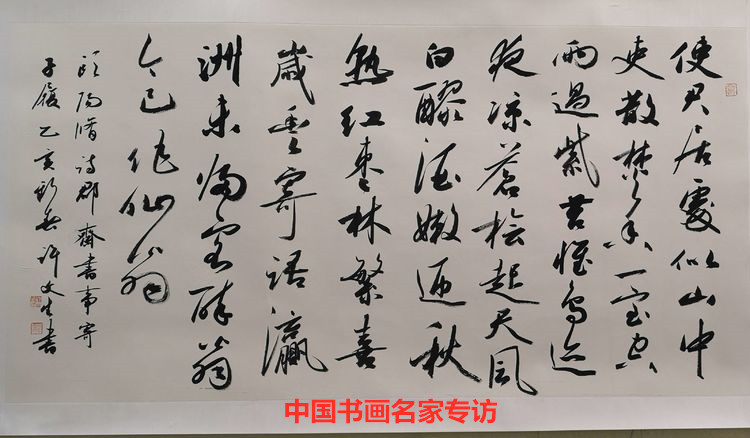 使君居處似山中
吏散焚香一室空
雨過紫苔惟鳥迹
夜凉蒼檜起天風
白醪酒嫩迎秋
熟红棗林繁喜
歲豐寄語瀛
洲未歸客醉翁
今已作仙翁
歐陽脩詩郡齋書事寄
子履乙亥許文生書
中国书画名家专访